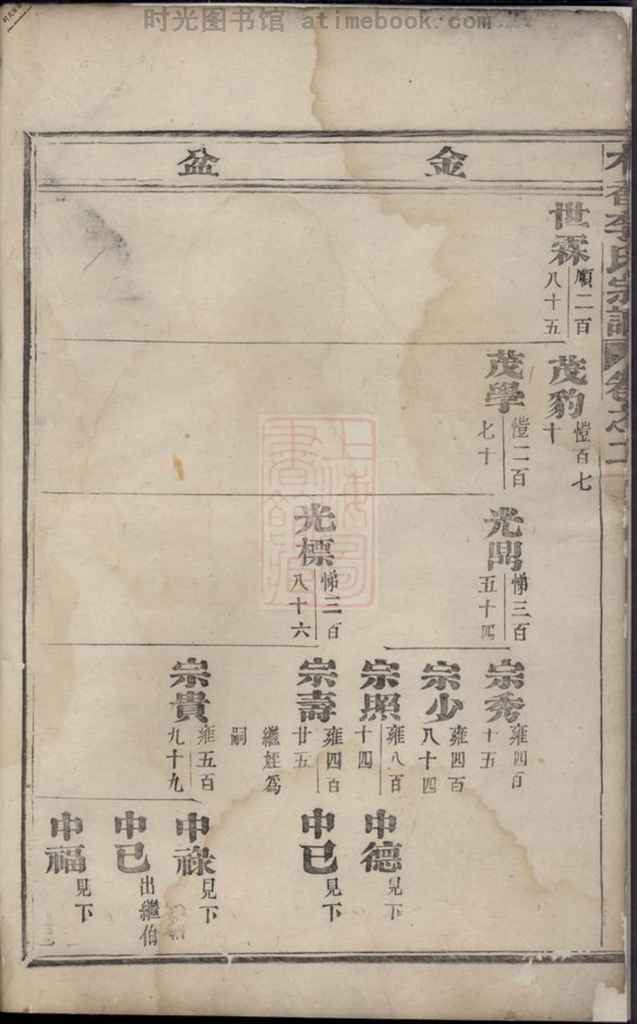 时光图书馆 atimebook.com
李氏宗譜 卷之二
金
盆
世霖 順二百八十五
茂豹 愷百七十
茂學 愷二百七十
光閗 悌三百五十四
光標 悌三百八十六
宗秀 雍四百十五
宗少 雍四百八十四
宗照 雍八百十四
宗壽 雍四百廿五
繼姪為嗣
宗貴 雍五百九十九
中德 見下
中已 見下
中祿 見下
中已 出繼伯
中福 見下